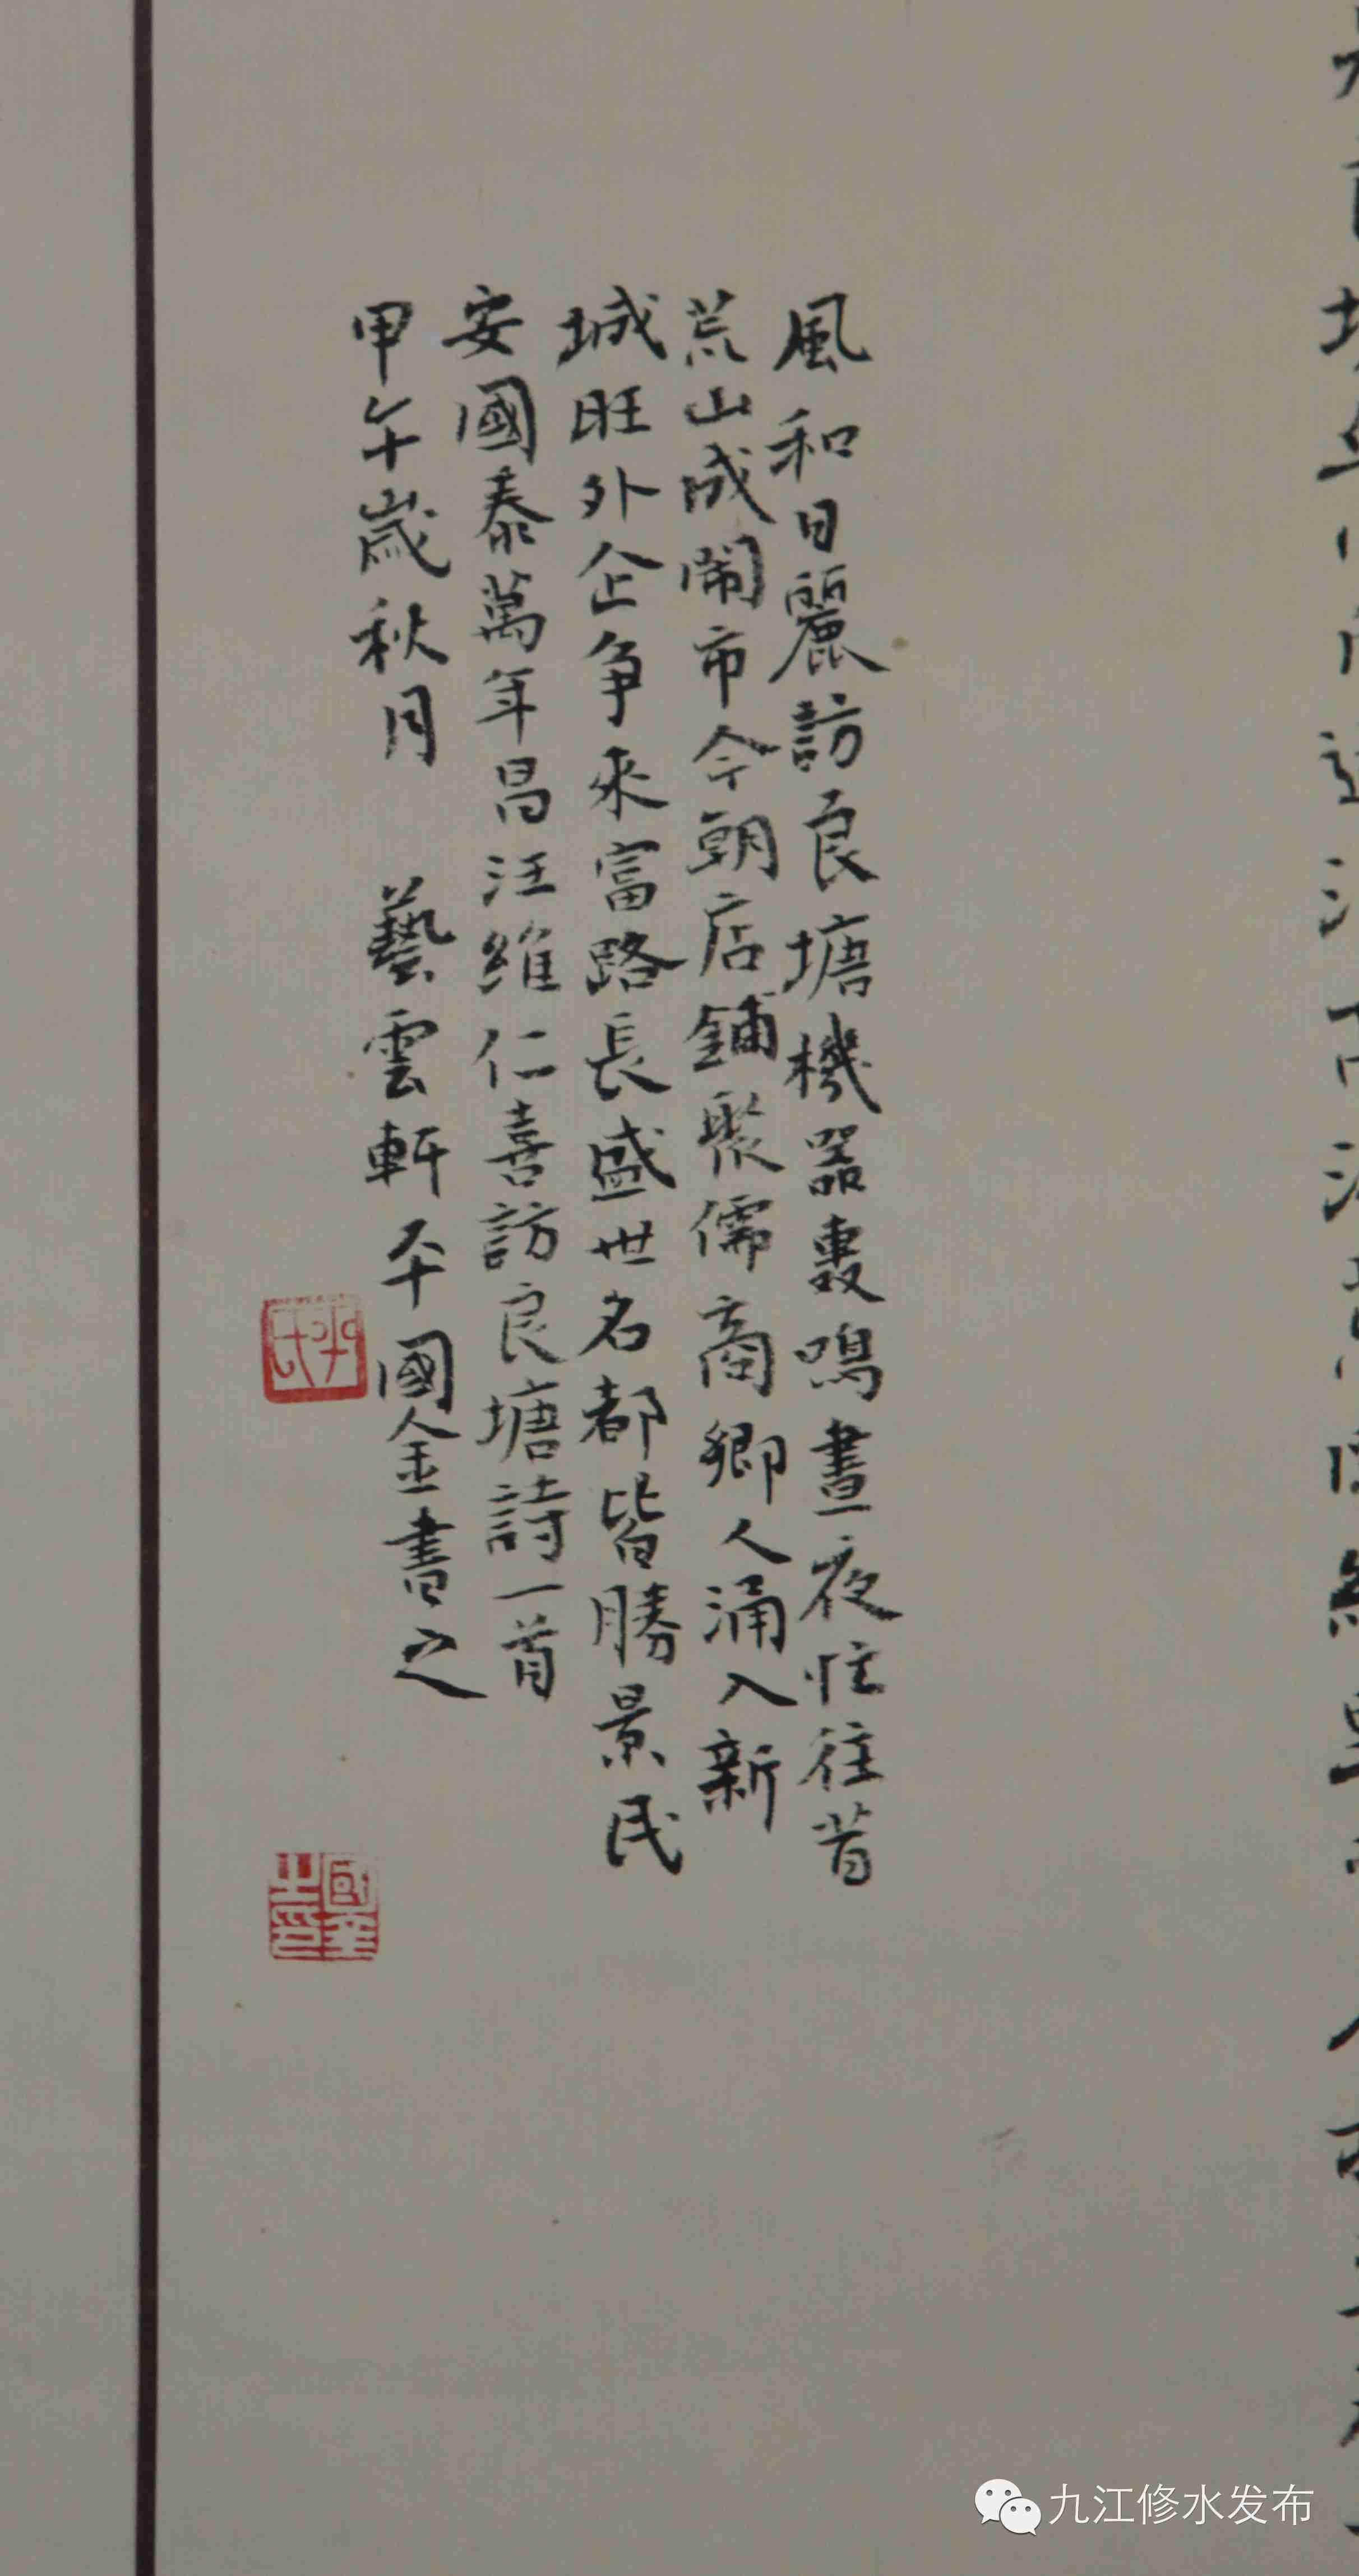 風和日麗訪良塘機器轟鳴晝夜忙往昔
荒山成鬧市今朝店鋪聚儒商鄉人涌入新
城旺外企争來富路長盛世名都皆勝景民
安國泰萬年昌汪維仁喜訪良塘詩一首
甲午歲秋月 藝雲軒 平國金書之
九江修水发布